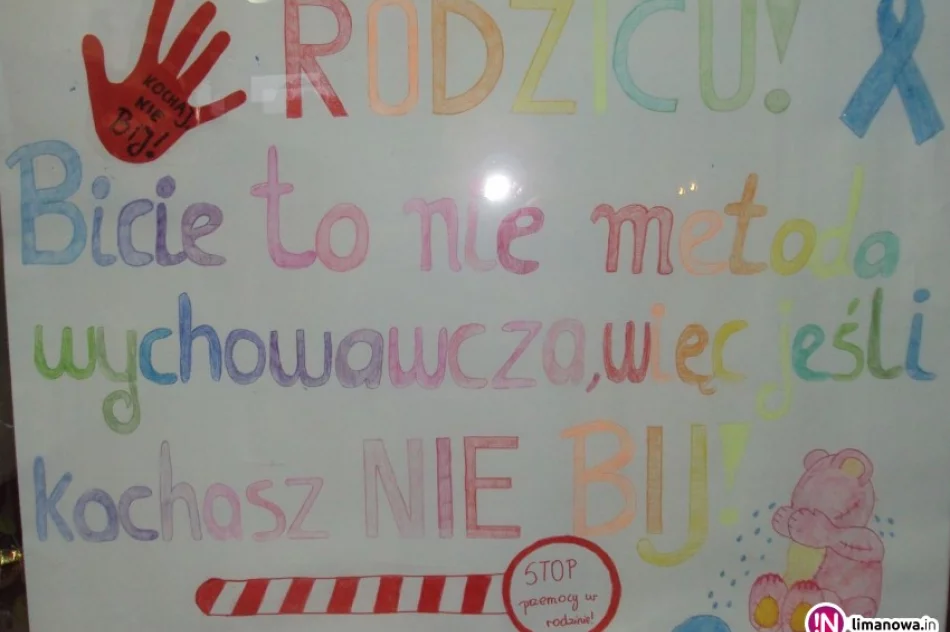 RODZICU!
KOCHAJ,
NIE
BIJ!
Bicie to nie metoda
wychowawcza, więc jeśli
kochasz NIE BIJ!
STOP
przemocy w
rodzinie!
!N limanowa.in